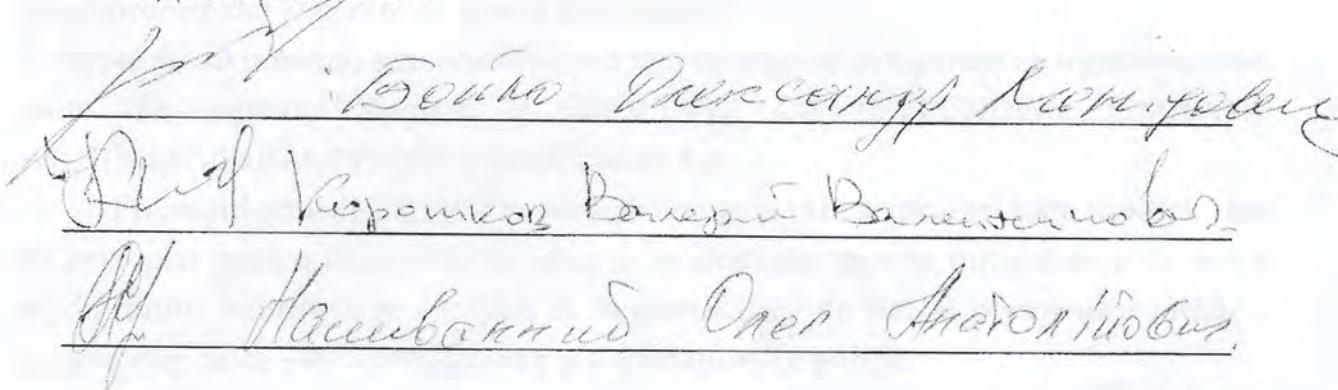 Бойко Олександр Леонідович
Коршиков Валерий Валентинович
Наливанний Олег Анатолійович